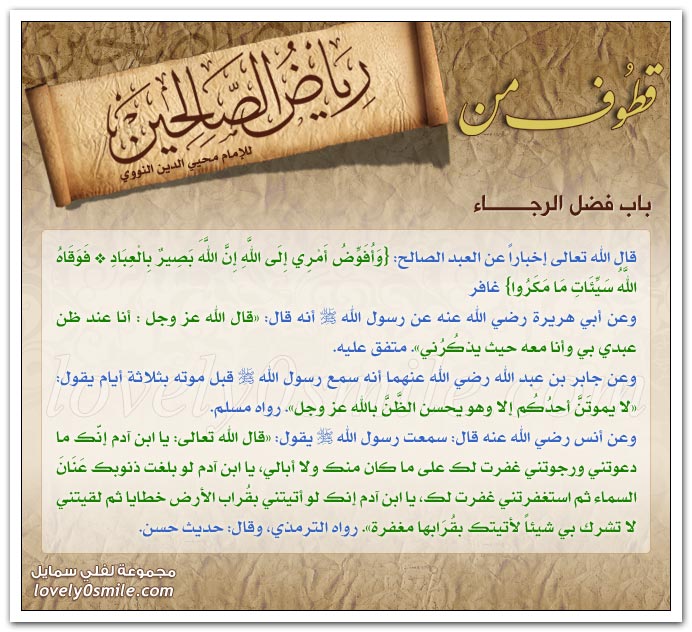 قطوف من
رياض الصالحين
للإمام محيي الدين النووي
باب فضل الرجـــــاء
قال الله تعالى إخباراً عن العبد الصالح: {وَأُفَوِّضُ أَمْرِي إِلَى اللَّهِ إِنَّ اللَّهَ بَصِيرٌ بِالْعِبَادِ ❖ فَوَقَاهُ
اللَّهُ سَيِّئَاتِ مَا مَكَرُوا} غافر
وعن أبي هريرة رضي الله عنه عن رسول الله ﷺ أنه قال: «قال الله عز وجل : أنا عند ظن
عبدي بي وأنا معه حيث يذكُرُني». متفق عليه.
وعن جابر بن عبد الله رضي الله عنهما أنه سمع رسول الله ﷺ قبل موته بثلاثة أيام يقول:
«لا يموتَنَّ أحدُكُم إلا وهو يحسن الظَّنَّ بالله عز وجل». رواه مسلم.
وعن أنس رضي الله عنه قال: سمعت رسول الله ﷺ يقول: «قال الله تعالى: يا ابن آدم إنّك ما
دعوتني ورجوتني غفرت لك على ما كان منك ولا أبالي، يا ابن آدم لو بلغت ذنوبك عَنَانَ
السماء ثم استغفرتني غفرت لك، يا ابن آدم إنك لو أتيتني بقُراب الأرض خطايا ثم لقيتني
لا تشرك بي شيئاً لأتيتك بقُرَابها مغفرة». رواه الترمذي، وقال: حديث حسن.
lovely0smile.com
مجموعة لفلي سمايل
lovely0smile.com